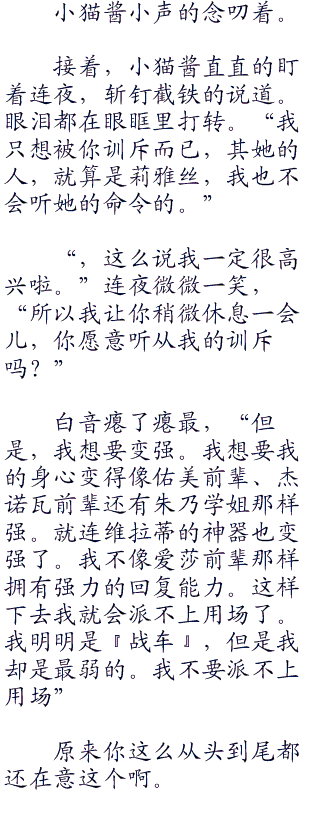 小猫酱小声的念叨着。
接着，小猫酱直直的盯
着连夜，斩钉截铁的说道。
眼泪都在眼眶里打转。“我
只想被你训斥而已，其她的
人，就算是莉雅丝，我也不
会听她的命令的。”
“，这么说我一定很高
兴啦。”连夜微微一笑，
“所以我让你稍微休息一会
儿，你愿意听从我的训斥
吗？”
白音瘪了瘪最，“但
是，我想要变强。我想要我
的身心变得像佑美前辈、杰
诺瓦前辈还有朱乃学姐那样
强。就连维拉蒂的神器也变
强了。我不像爱莎前辈那样
拥有强力的回复能力。这样
下去我就会派不上用场了。
我明明是『战车』，但是我
却是最弱的。我不要派不上
用场”
原来你这么从头到尾都
还在意这个啊。